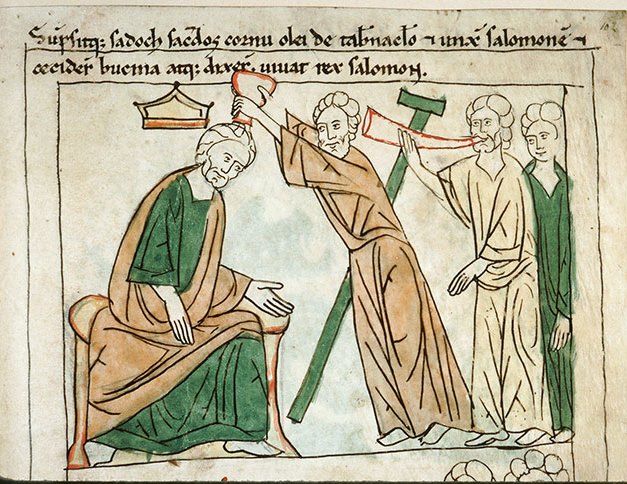 Sūpsitq; sadoch sac̄dos cornu olei de tab̄naclo ⁊ unx̄ salomonē ⁊
cecider̄ bucina atq; dixer̄. uiuat rex salomon.